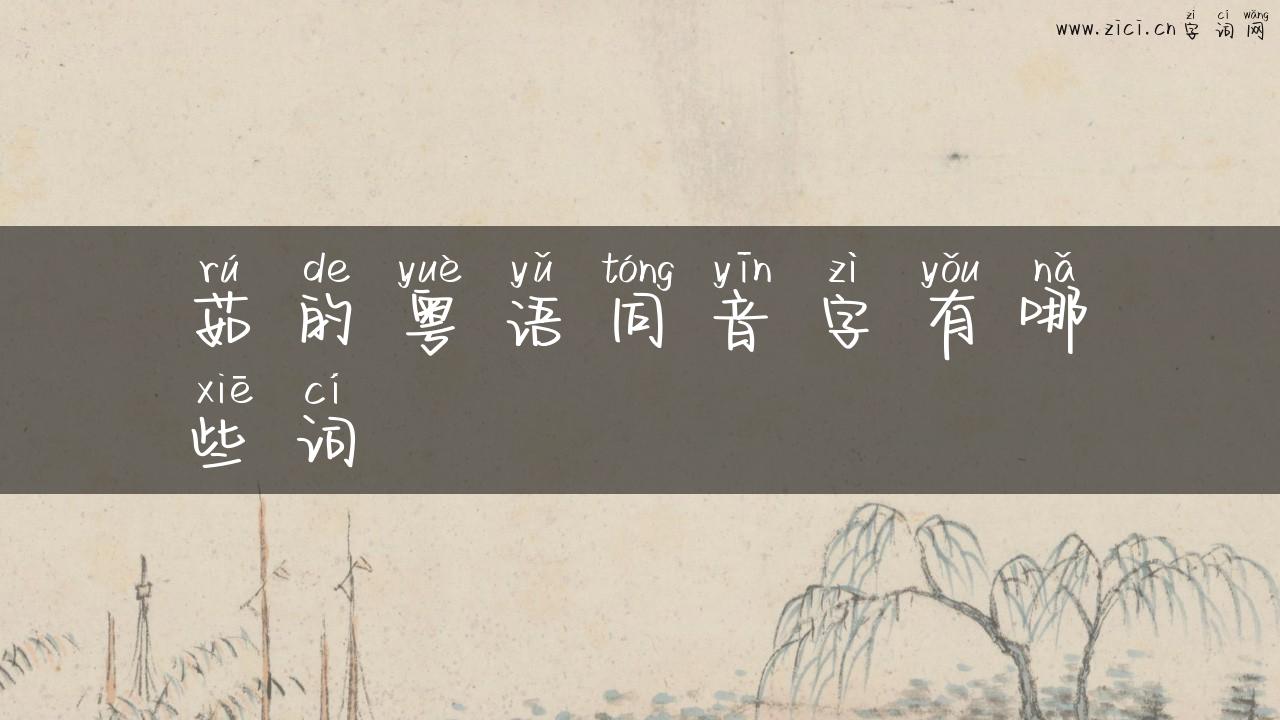 zì cí wǎng
www.zici.cn 字词网
rú de yuè yǔ tóng yīn zì yǒu nǎ
茹的粤语同音字有哪
xiē cí
些词